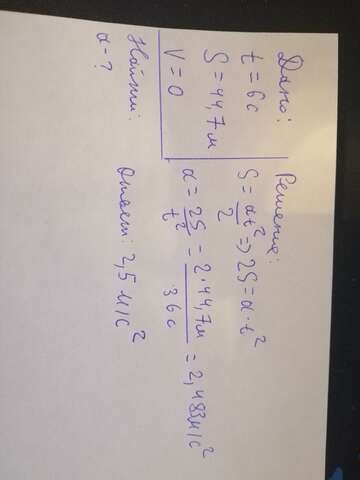 Дано:
t = 6с
S = 44,7м
V = 0
Найти:
a - ?
Решение:
S = at²/2 => 2S = a·t²
a = 2S/t² = 2·44,7м/36с = 2,483м/с²
Ответ: 2,5 м/с²